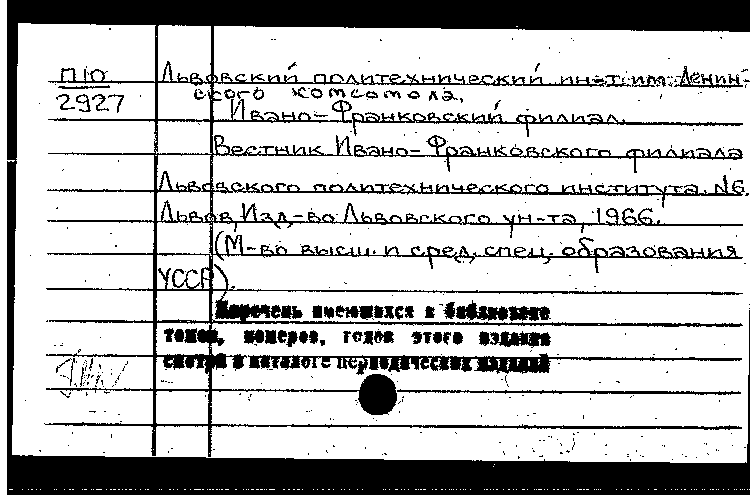 П10
2927
Львовский политехнический ин-т им. Ленин-
ского комсомола.
Ивано-Франковский филиал.
Вестник Ивано-Франковского филиала
Львовского политехнического института. №6.
Львов, Изд-во Львовского ун-та, 1966.
(М-во высш. и сред. спец. образования
УССР).
Перечень имеющихся в библиотеке
томов, номеров, годов этого издания
смотри в каталоге периодических изданий